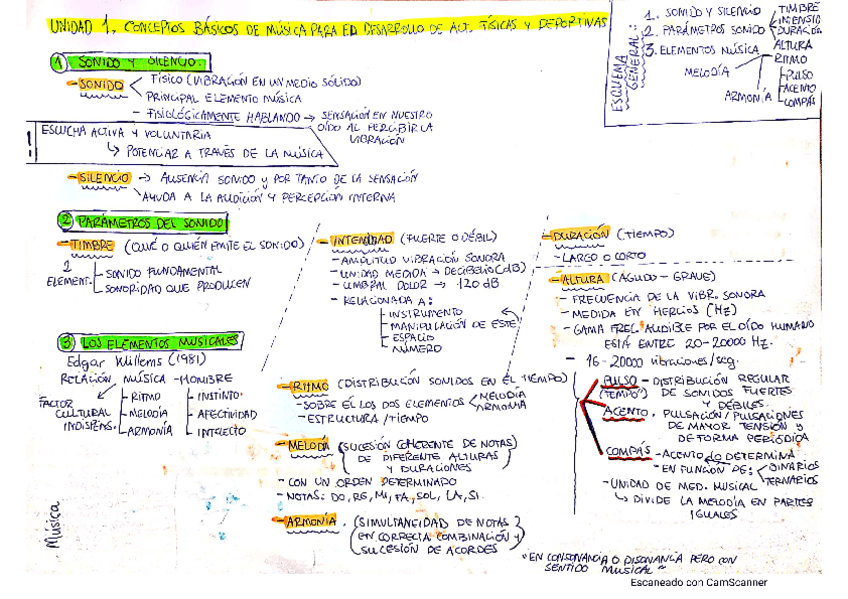 UNIDAD 1. CONCEPTOS BÁSICOS DE MÚSICA PARA ED DESARROLLO DE ACT. FÍSICAS Y DEPORTIVAS
ESQUEMA GENERAL:
1. SONIDO Y SILENCIO
2. PARÁMETROS SONIDO
TIMBRE
INTENSID
DURACIÓN
ALTURA
3. ELEMENTOS MÚSICA
MELODÍA
ARMONÍA
RITMO
PULSO
ACENTO
COMPÁS
1 SONIDO Y SILENCIO:
- SONIDO
FÍSICO (VIBRACIÓN EN UN MEDIO SÓLIDO)
PRINCIPAL ELEMENTO MÚSICA
- FISIOLÓGICAMENTE HABLANDO → SENSACIÓN EN NUESTRO
OÍDO AL PERCIBIR LA
VIBRACIÓN
!
ESCUCHA ACTIVA Y VOLUNTARIA
↳ POTENCIAR A TRAVÉS DE LA MÚSICA
- SILENCIO → AUSENCIA SONIDO Y POR TANTO DE LA SENSACIÓN
AYUDA A LA AUDICIÓN Y PERCEPCIÓN INTERNA
2 PARÁMETROS DEL SONIDO
- TIMBRE (QUÉ O QUIÉN EMITE EL SONIDO)
2
ELEMENT.
- SONIDO FUNDAMENTAL
- SONORIDAD QUE PRODUCEN
- INTENSIDAD (FUERTE O DÉBIL)
- AMPLITUD VIBRACIÓN SONORA
- UNIDAD MEDIDA → DECIBELIO (dB)
- UMBRAL DOLOR → 120 dB
- RELACIONADA A:
INSTRUMENTO
MANIPULACIÓN DE ESTE
ESPACIO
NÚMERO
- DURACIÓN (TIEMPO)
- LARGO O CORTO
- ALTURA (AGUDO - GRAVE)
- FRECUENCIA DE LA VIBR. SONORA
- MEDIDA EN HERCIOS (Hz)
- GAMA FREC. AUDIBLE POR EL OÍDO HUMANO
ESTÁ ENTRE 20-20000 Hz.
- 16-20000 vibraciones/seg.
3 LOS ELEMENTOS MUSICALES
Edgar Willems (1981)
RELACIÓN MÚSICA - HOMBRE
FACTOR
CULTURAL
INDISPENS.
- RITMO
- MELODÍA
- ARMONÍA
- INSTINTO
- AFECTIVIDAD
- INTELECTO
- RITMO (DISTRIBUCIÓN SONIDOS EN EL TIEMPO)
- SOBRE ÉL LOS DOS ELEMENTOS
MELODÍA
ARMONÍA
- ESTRUCTURA/TIEMPO
- PULSO - DISTRIBUCIÓN REGULAR
(TEMPO) DE SONIDOS FUERTES
Y DÉBILES
ACENTO. PULSACIÓN/PULSACIONES
DE MAYOR TENSIÓN Y
DE FORMA PERIÓDICA
COMPÁS - ACENTO lo DETERMINA
- EN FUNCIÓN DE:
BINARIOS
TERNARIOS
- UNIDAD DE MED. MUSICAL
↳ DIVIDE LA MELODÍA EN PARTES
IGUALES
- MELODÍA (SUCESIÓN COHERENTE DE NOTAS
DE DIFERENTE ALTURAS
Y DURACIONES)
- CON UN ORDEN DETERMINADO
- NOTAS: DO, RE, MI, FA, SOL, LA, SI.
- ARMONÍA. (SIMULTANEIDAD DE NOTAS
EN CORRECTA COMBINACIÓN Y
SUCESIÓN DE ACORDES)
"EN CONSONANCIA O DISONANCIA PERO CON
SENTIDO MUSICAL"
Música
Escaneado con CamScanner